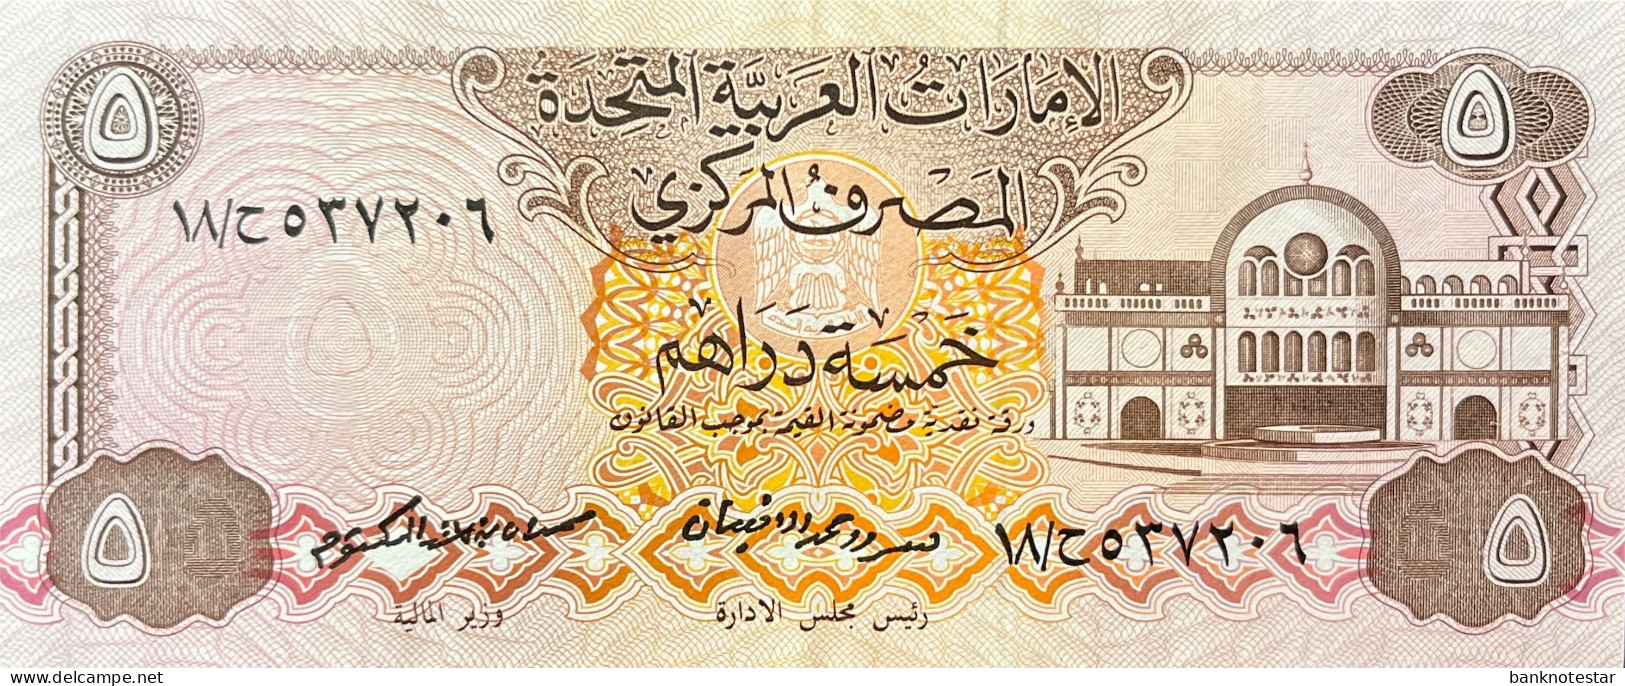 الإمارات العربية المتحدة
٥
٥
المصرف المركزي
١٨/ح ٥٣٧٢٠٦
خمسة دراهم
ورقة نقدية مضمونة القيمة بموجب القانون
١٨/ح ٥٣٧٢٠٦
٥
٥
رئيس مجلس الادارة
وزير المالية
www.delcampe.net
banknotestar